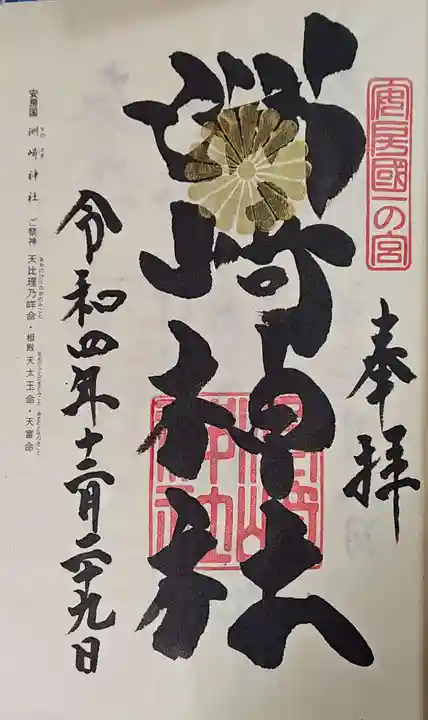 安房國一の宮
奉拝
洲崎神社
令和四年十二月二十九日
安房国 洲崎神社 ご祭神 天比理乃咩命・相殿 天太玉命・天富命